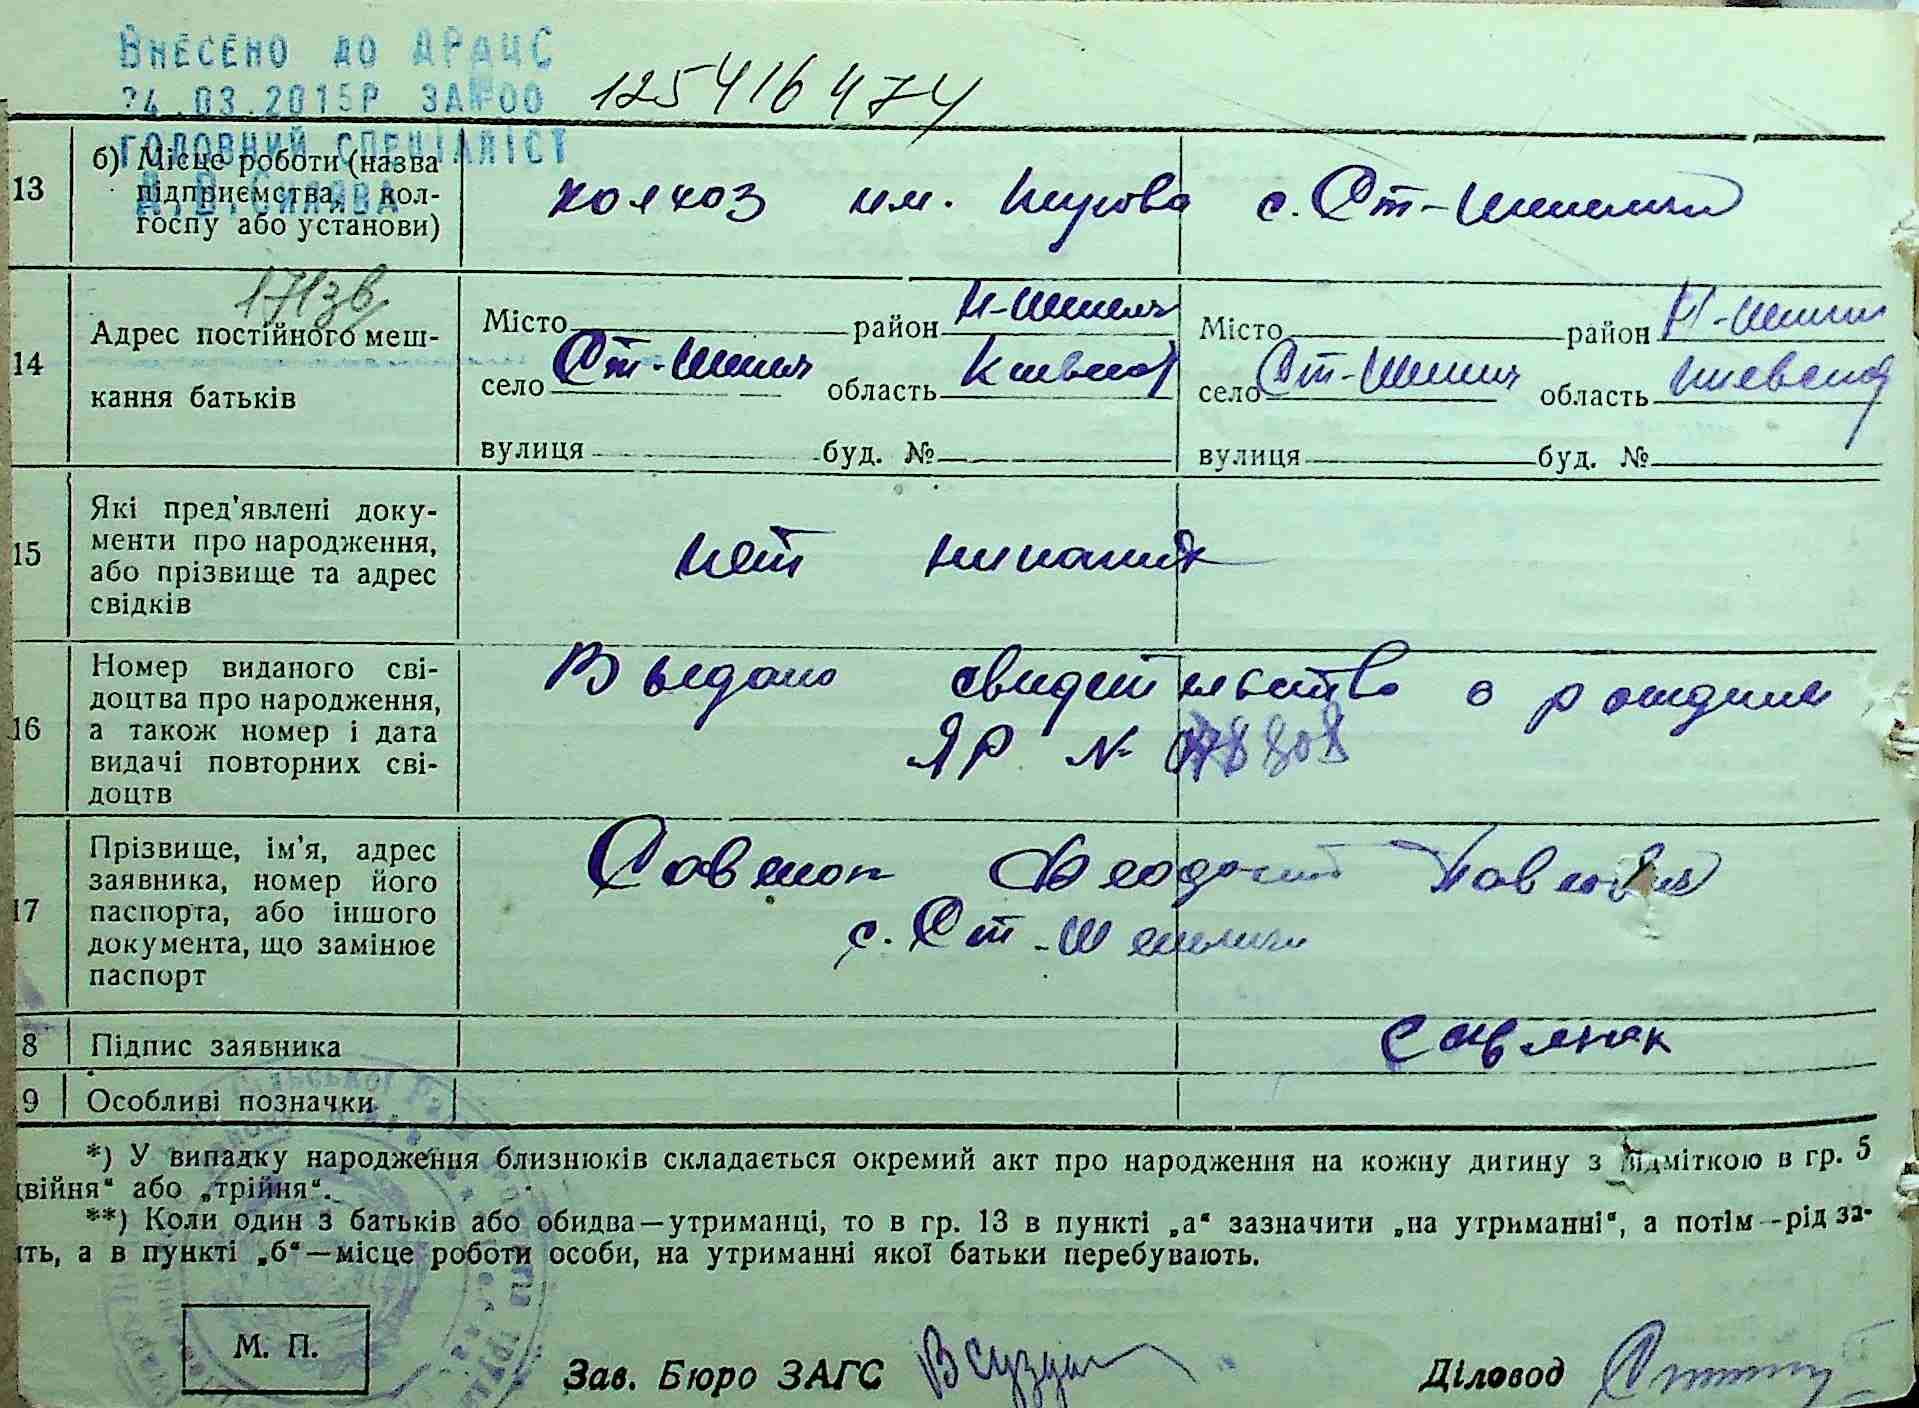 ВНЕСЕНО ДО ДРАЦС
24.03.2015Р ЗА №00 125416474
ГОЛОВНИЙ СПЕЦІАЛІСТ
13 б) Місце роботи (назва
підприємства, кол-
госпу або установи)
колхоз им. с. Ст-Шепеличи
171зв
14 Адрес постійного меш-
кання батьків
Місто район Н-Шепелич
село Ст-Шепелич область Киевская
вулиця буд. №
Місто район Н-Шепелич
село Ст-Шепелич область Киевская
вулиця буд. №
15 Які пред'явлені доку-
менти про народження,
або прізвище та адрес
свідків
нет никаких
16 Номер виданого сві-
доцтва про народження,
а також номер і дата
видачі повторних сві-
доцтв
Выдано свидетельство о рождении
ЯР №
17 Прізвище, ім'я, адрес
заявника, номер його
паспорта, або іншого
документа, що замінює
паспорт
Савенок Феодосий Павлович
с. Ст-Шепеличи
8 Підпис заявника
Савенок
9 Особливі позначки
*) У випадку народження близнюків складається окремий акт про народження на кожну дитину з відміткою в гр. 5
двійня" або „трійня".
**) Коли один з батьків або обидва—утриманці, то в гр. 13 в пункті „а" зазначити „на утриманні", а потім—рід за-
ть, а в пункті „б"—місце роботи особи, на утриманні якої батьки перебувають.
М. П.
Зав. Бюро ЗАГС Діловод